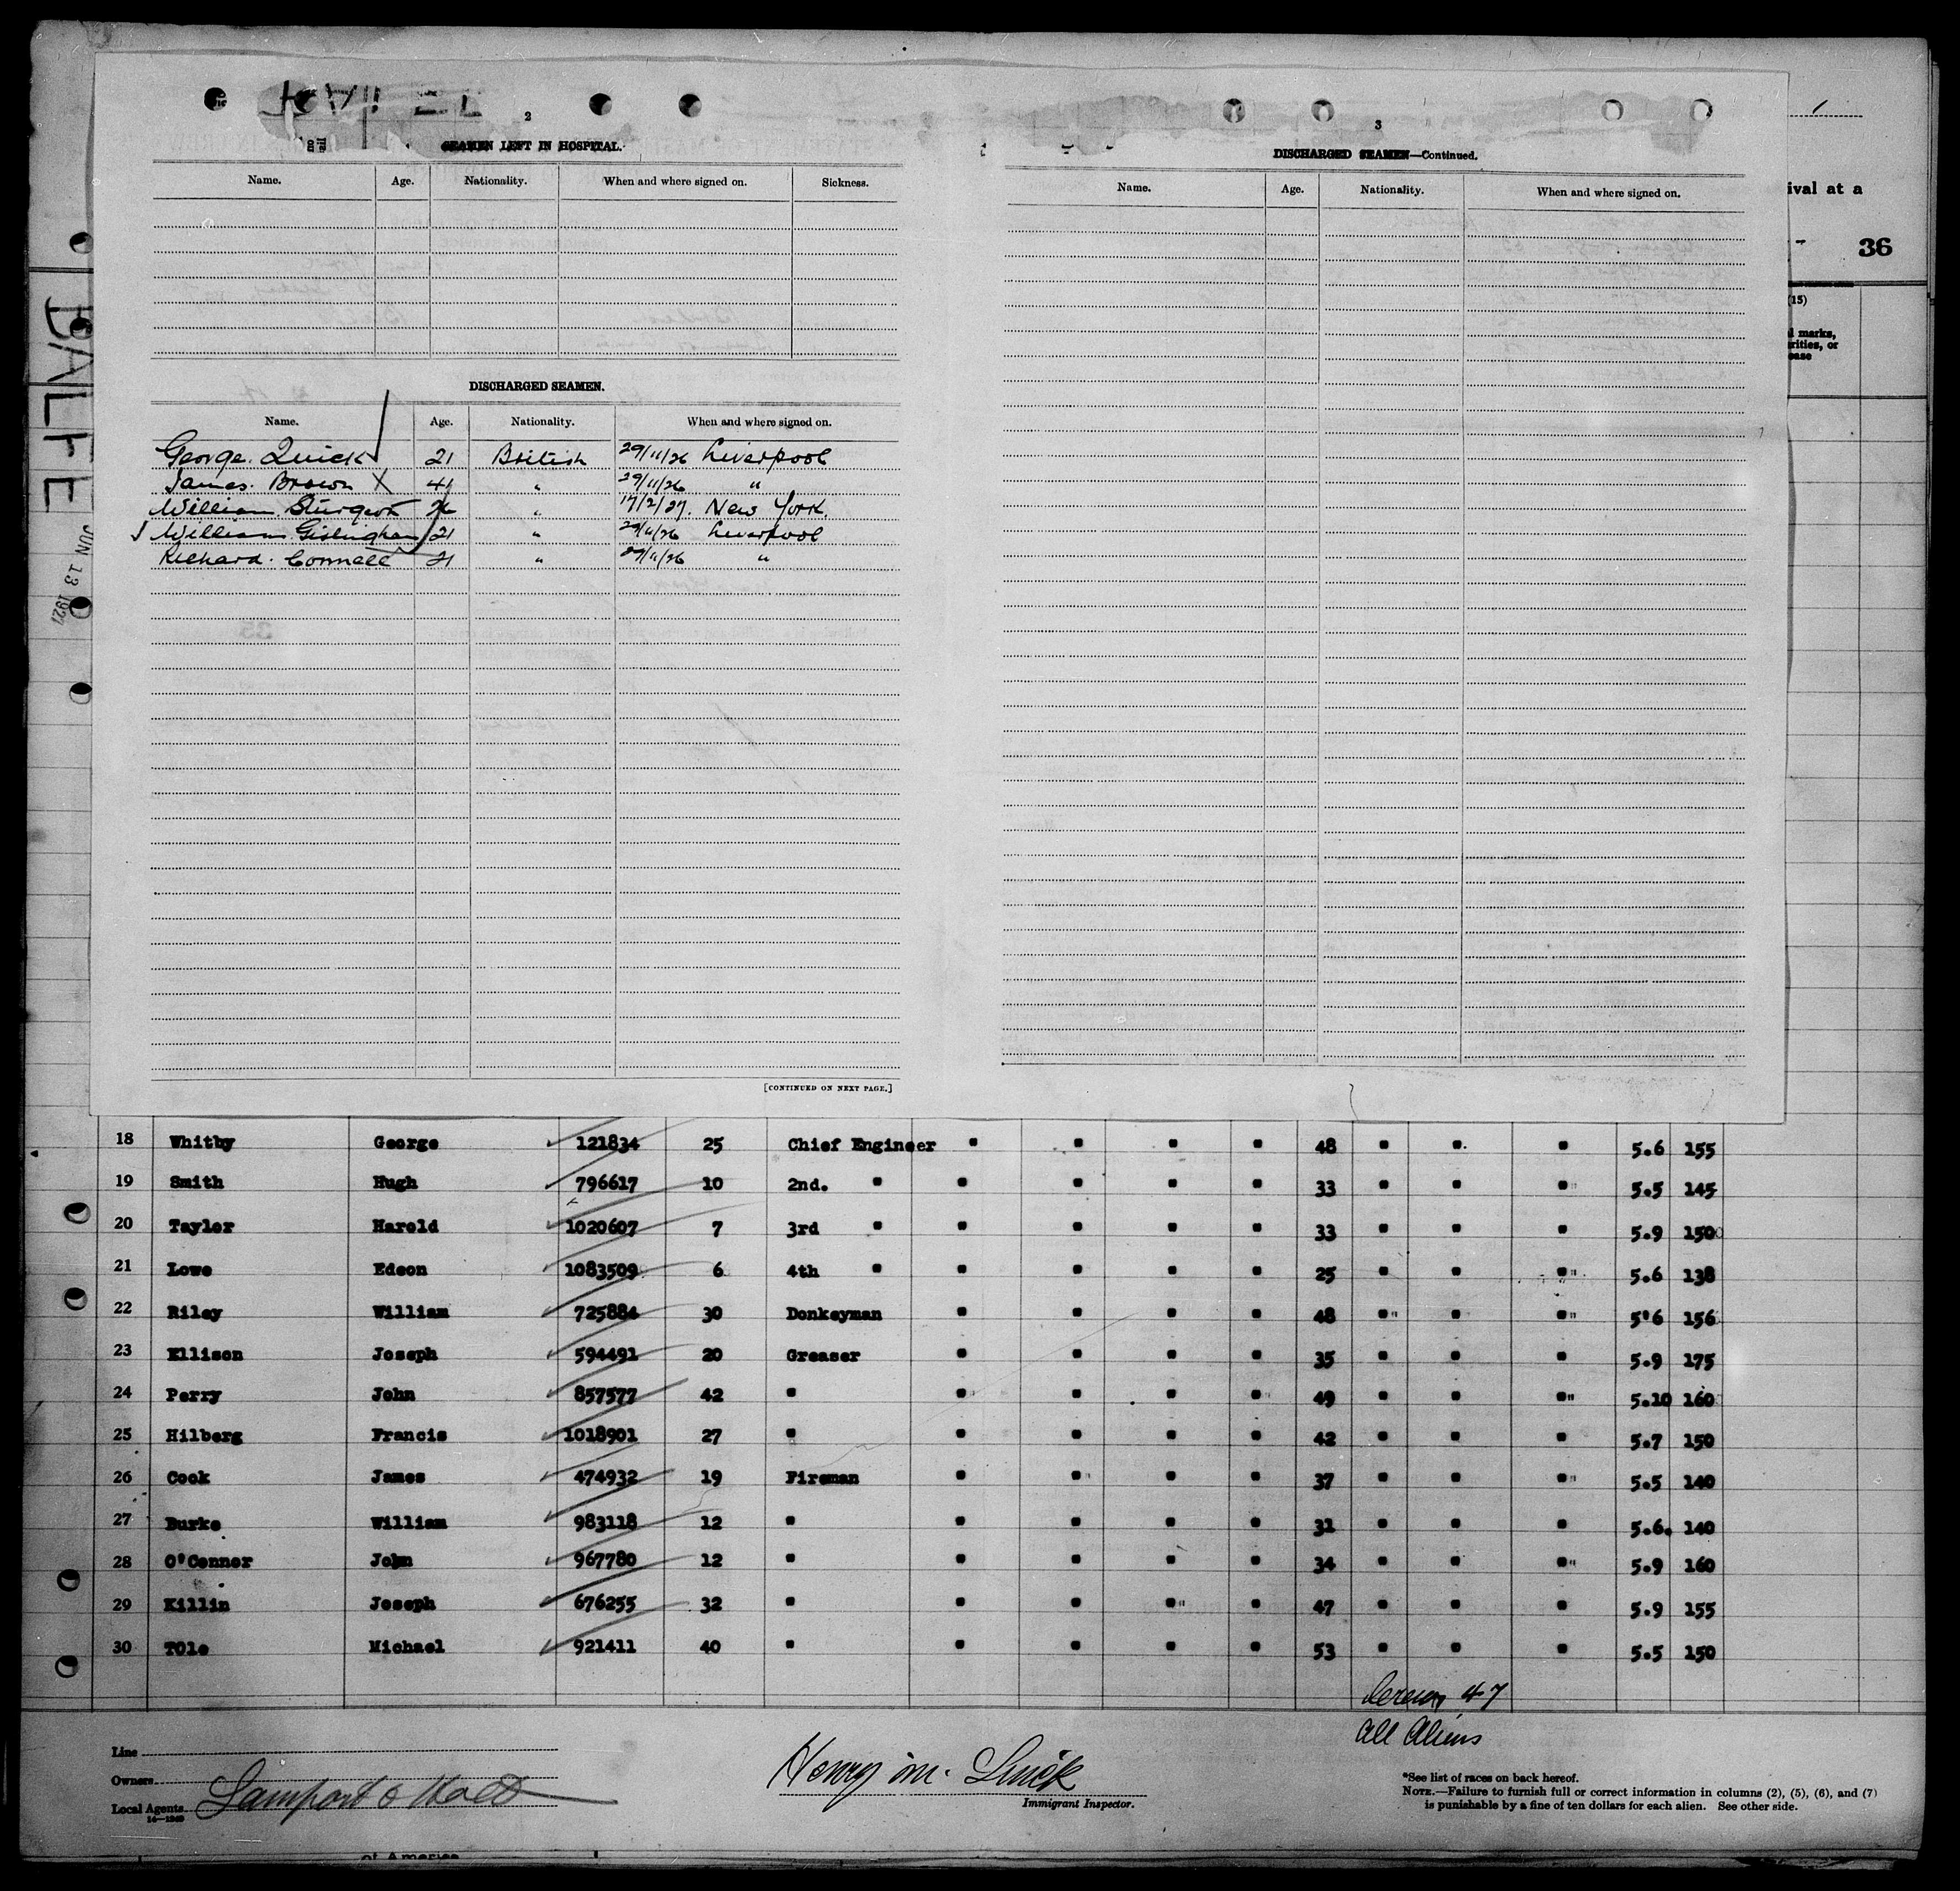 BALFE
JUN 13 1927
2
SEAMEN LEFT IN HOSPITAL.
Name. Age. Nationality. When and where signed on. Sickness.
DISCHARGED SEAMEN.
Name. Age. Nationality. When and where signed on.
George. Quick 21 British 29/11/26 Liverpool
James. Brown X 41 " 29/11/26 "
William. Sturgeon 26 " 17/2/27. New York.
William. Gislingham 21 " 29/11/26 Liverpool
Richard. Connell 21 " 29/11/26 "
[CONTINUED ON NEXT PAGE.]
3
DISCHARGED SEAMEN—Continued.
Name. Age. Nationality. When and where signed on.
ival at a
36
(15)
l marks,
rities, or
ease
18 Whitby George 121834 25 Chief Engineer " " " " 48 " " " 5.6 155
19 Smith Hugh 796617 10 2nd. " " " " " 33 " " " 5.5 145
20 Taylor Harold 1020607 7 3rd " " " " " 33 " " " 5.9 150
21 Lowe Edson 1083509 6 4th " " " " " 25 " " " 5.6 138
22 Riley William 725884 30 Donkeyman " " " " 48 " " " 5'6 156
23 Ellison Joseph 594491 20 Greaser " " " " 35 " " " 5.9 175
24 Perry John 857577 42 " " " " " 49 " " " 5.10 160
25 Hilberg Francis 1018901 27 " " " " " 42 " " " 5.7 150
26 Cook James 474932 19 Fireman " " " " 37 " " " 5.5 140
27 Burke William 983118 12 " " " " " 31 " " " 5.6. 140
28 O'Connor John 967780 12 " " " " " 34 " " " 5.9 160
29 Killin Joseph 676255 32 " " " " " 47 " " " 5.9 155
30 TOle Michael 921411 40 " " " " " 53 " " " 5.5 150
47
all Aliens
Line
Owners
Local Agents Lamport & Holt
14—1269
Henry m.
Immigrant Inspector.
*See list of races on back hereof.
NOTE.—Failure to furnish full or correct information in columns (2), (5), (6), and (7)
is punishable by a fine of ten dollars for each alien. See other side.
of America